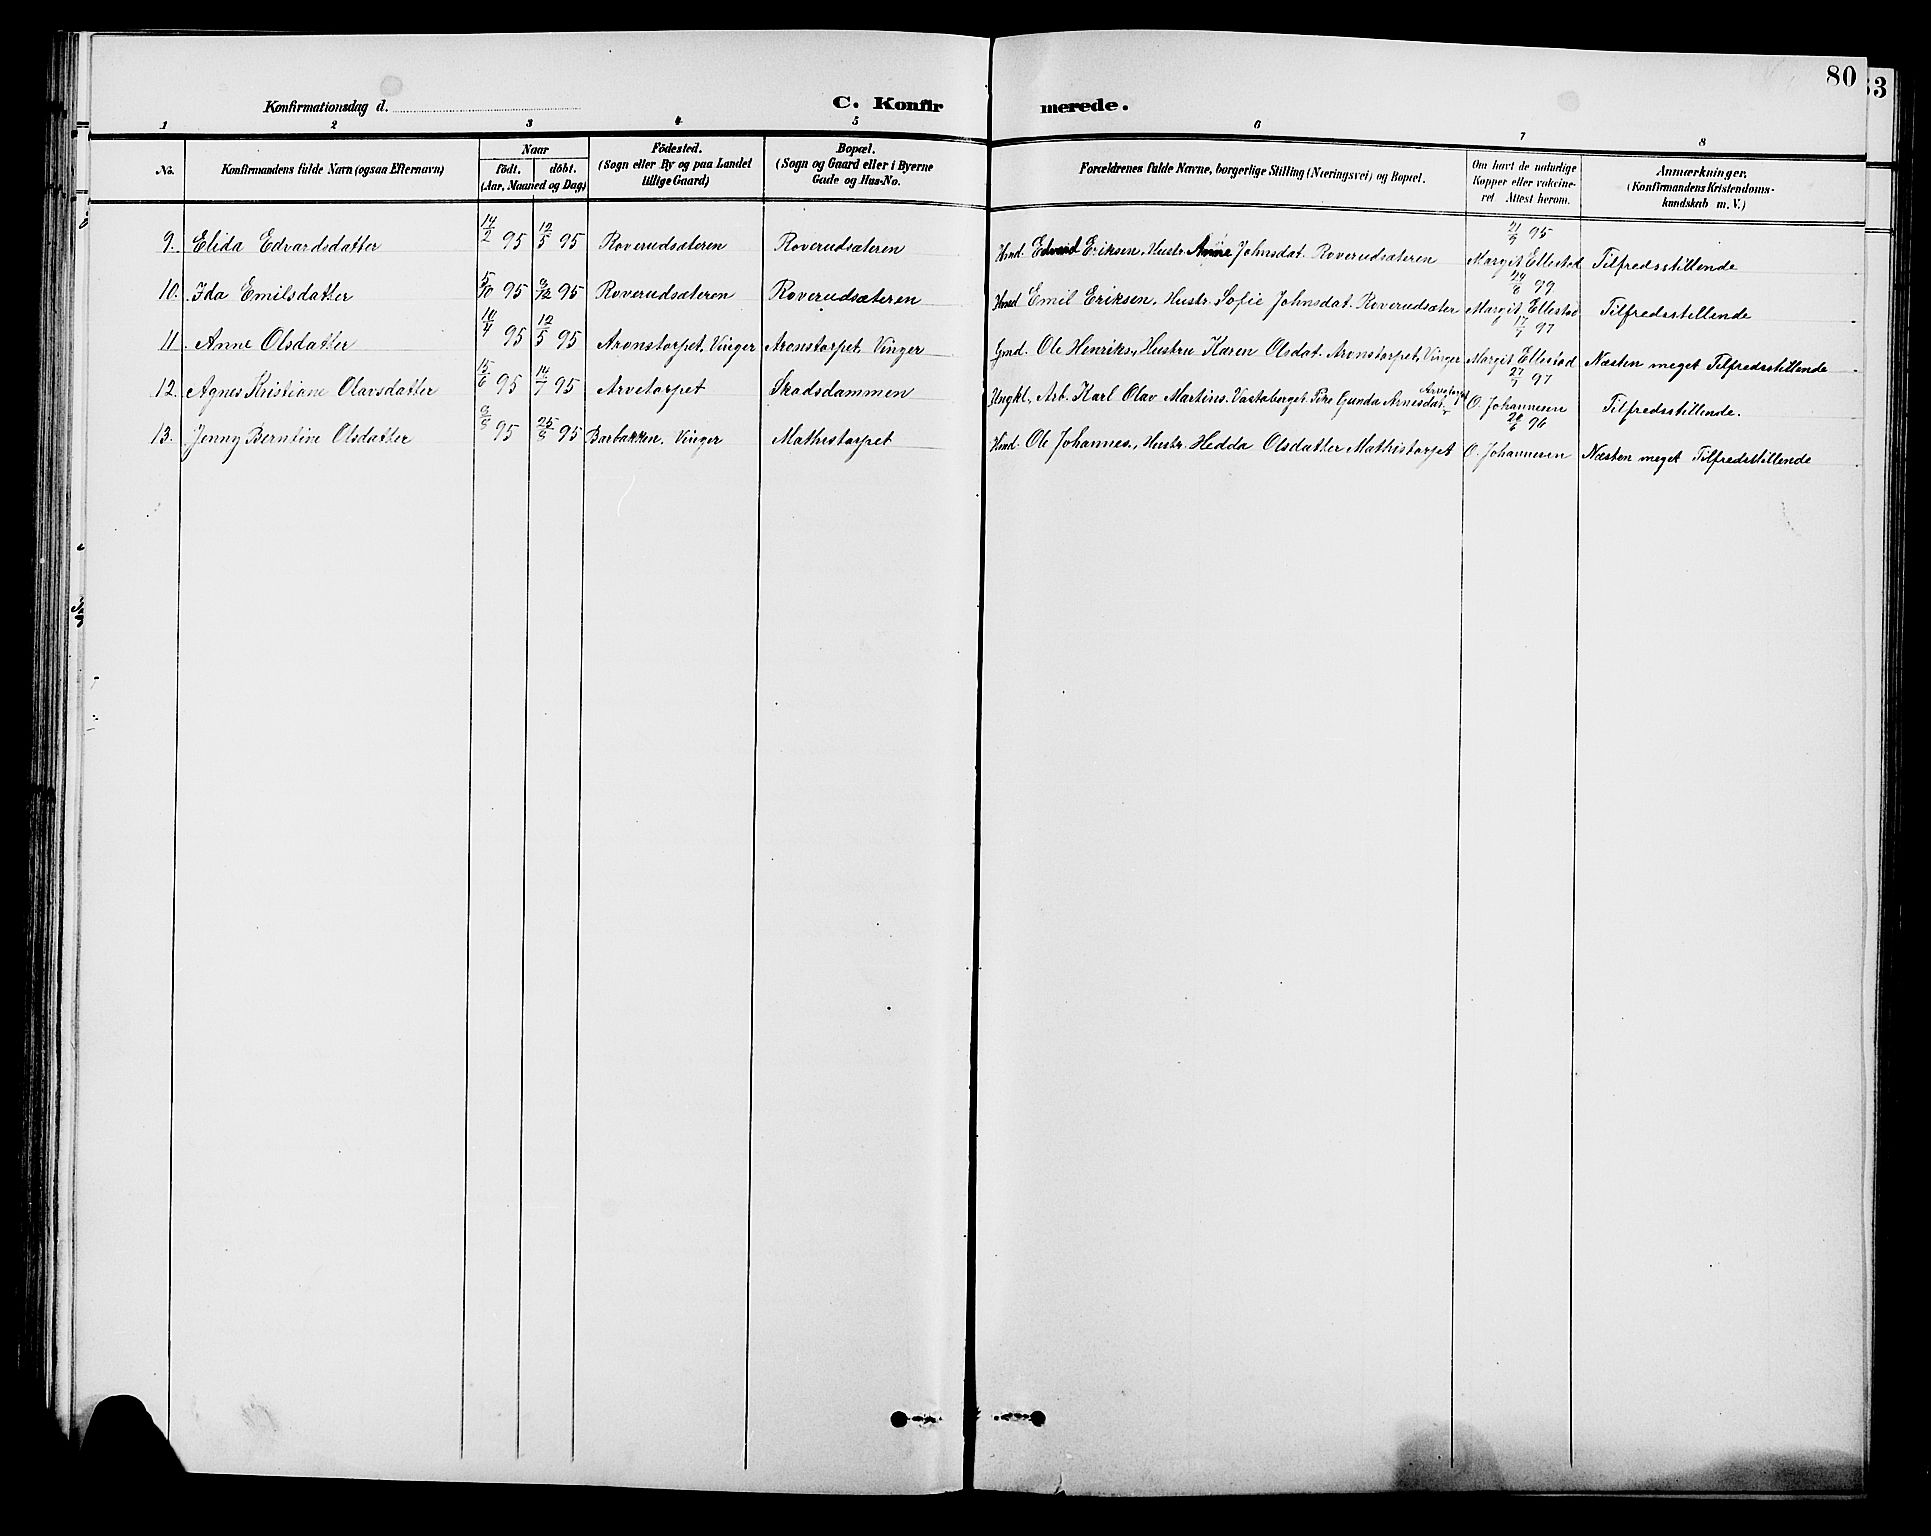 80
33
Konfirmationsdag d.
C. Konfir merede.
1 2 3 4 5 6 7 8
No.
Konfirmandens fulde Navn (ogsaa Efternavn)
Naar
födt. döbt.
(Aar, Maaned og Dag)
Födested.
(Sogn eller By og paa Landet
tillige Gaard)
Bopæl.
(Sogn og Gaard eller i Byerne
Gade og Hus-No.
Forældrenes fulde Navne, borgerlige Stilling (Næringsvei) og Bopæl.
Om havt de naturlige
Kopper eller vakcine-
ret Attest herom.
Anmærkninger.
(Konfirmandens Kristendoms-
kundskab m. V.)
9. Elida Edvardsdatter 14/2 95 12/5 95 Roverudsæteren Roverudsæteren Hmd. Edvard Eriksen, Hustr. Anne Johnsdat. Roverudsæteren 21/9 95 Margit Ellestad Tilfredsstillende
10. Ida Emilsdatter 5/10 95 8/12 95 Roverudsæteren Roverudsæteren Hmd. Emil Eriksen, Hustr. Sofie Johnsdat. Roverudsæter 24/6 99 Margit Ellestad Tilfredsstillende
11. Anne Olsdatter 10/4 95 12/5 95 Aronstorpet, Vinger Aronstorpet, Vinger Gmd. Ole Henriks., Hustru Karen Olsdat. Aronstorpet, Vinger 97 Margit Ellestad Næsten meget Tilfredsstillende
12. Agnes Kristiane Olavsdatter 15/6 95 14/7 95 Arvetorpet Skadsdammen Ungkl. Arb. Karl Olav Martins. Vastaberget Pike Gunda Arnesdat. 97 O. Johannesen Tilfredsstillende.
13. Jenny Berntine Olsdatter 95 25/8 95 Barbakken, Vinger Mathistorpet Hmd. Ole Johannes., Hustr. Hedda Olsdatter Mathistorpet 96 O. Johannesen Næsten meget Tilfredsstillende